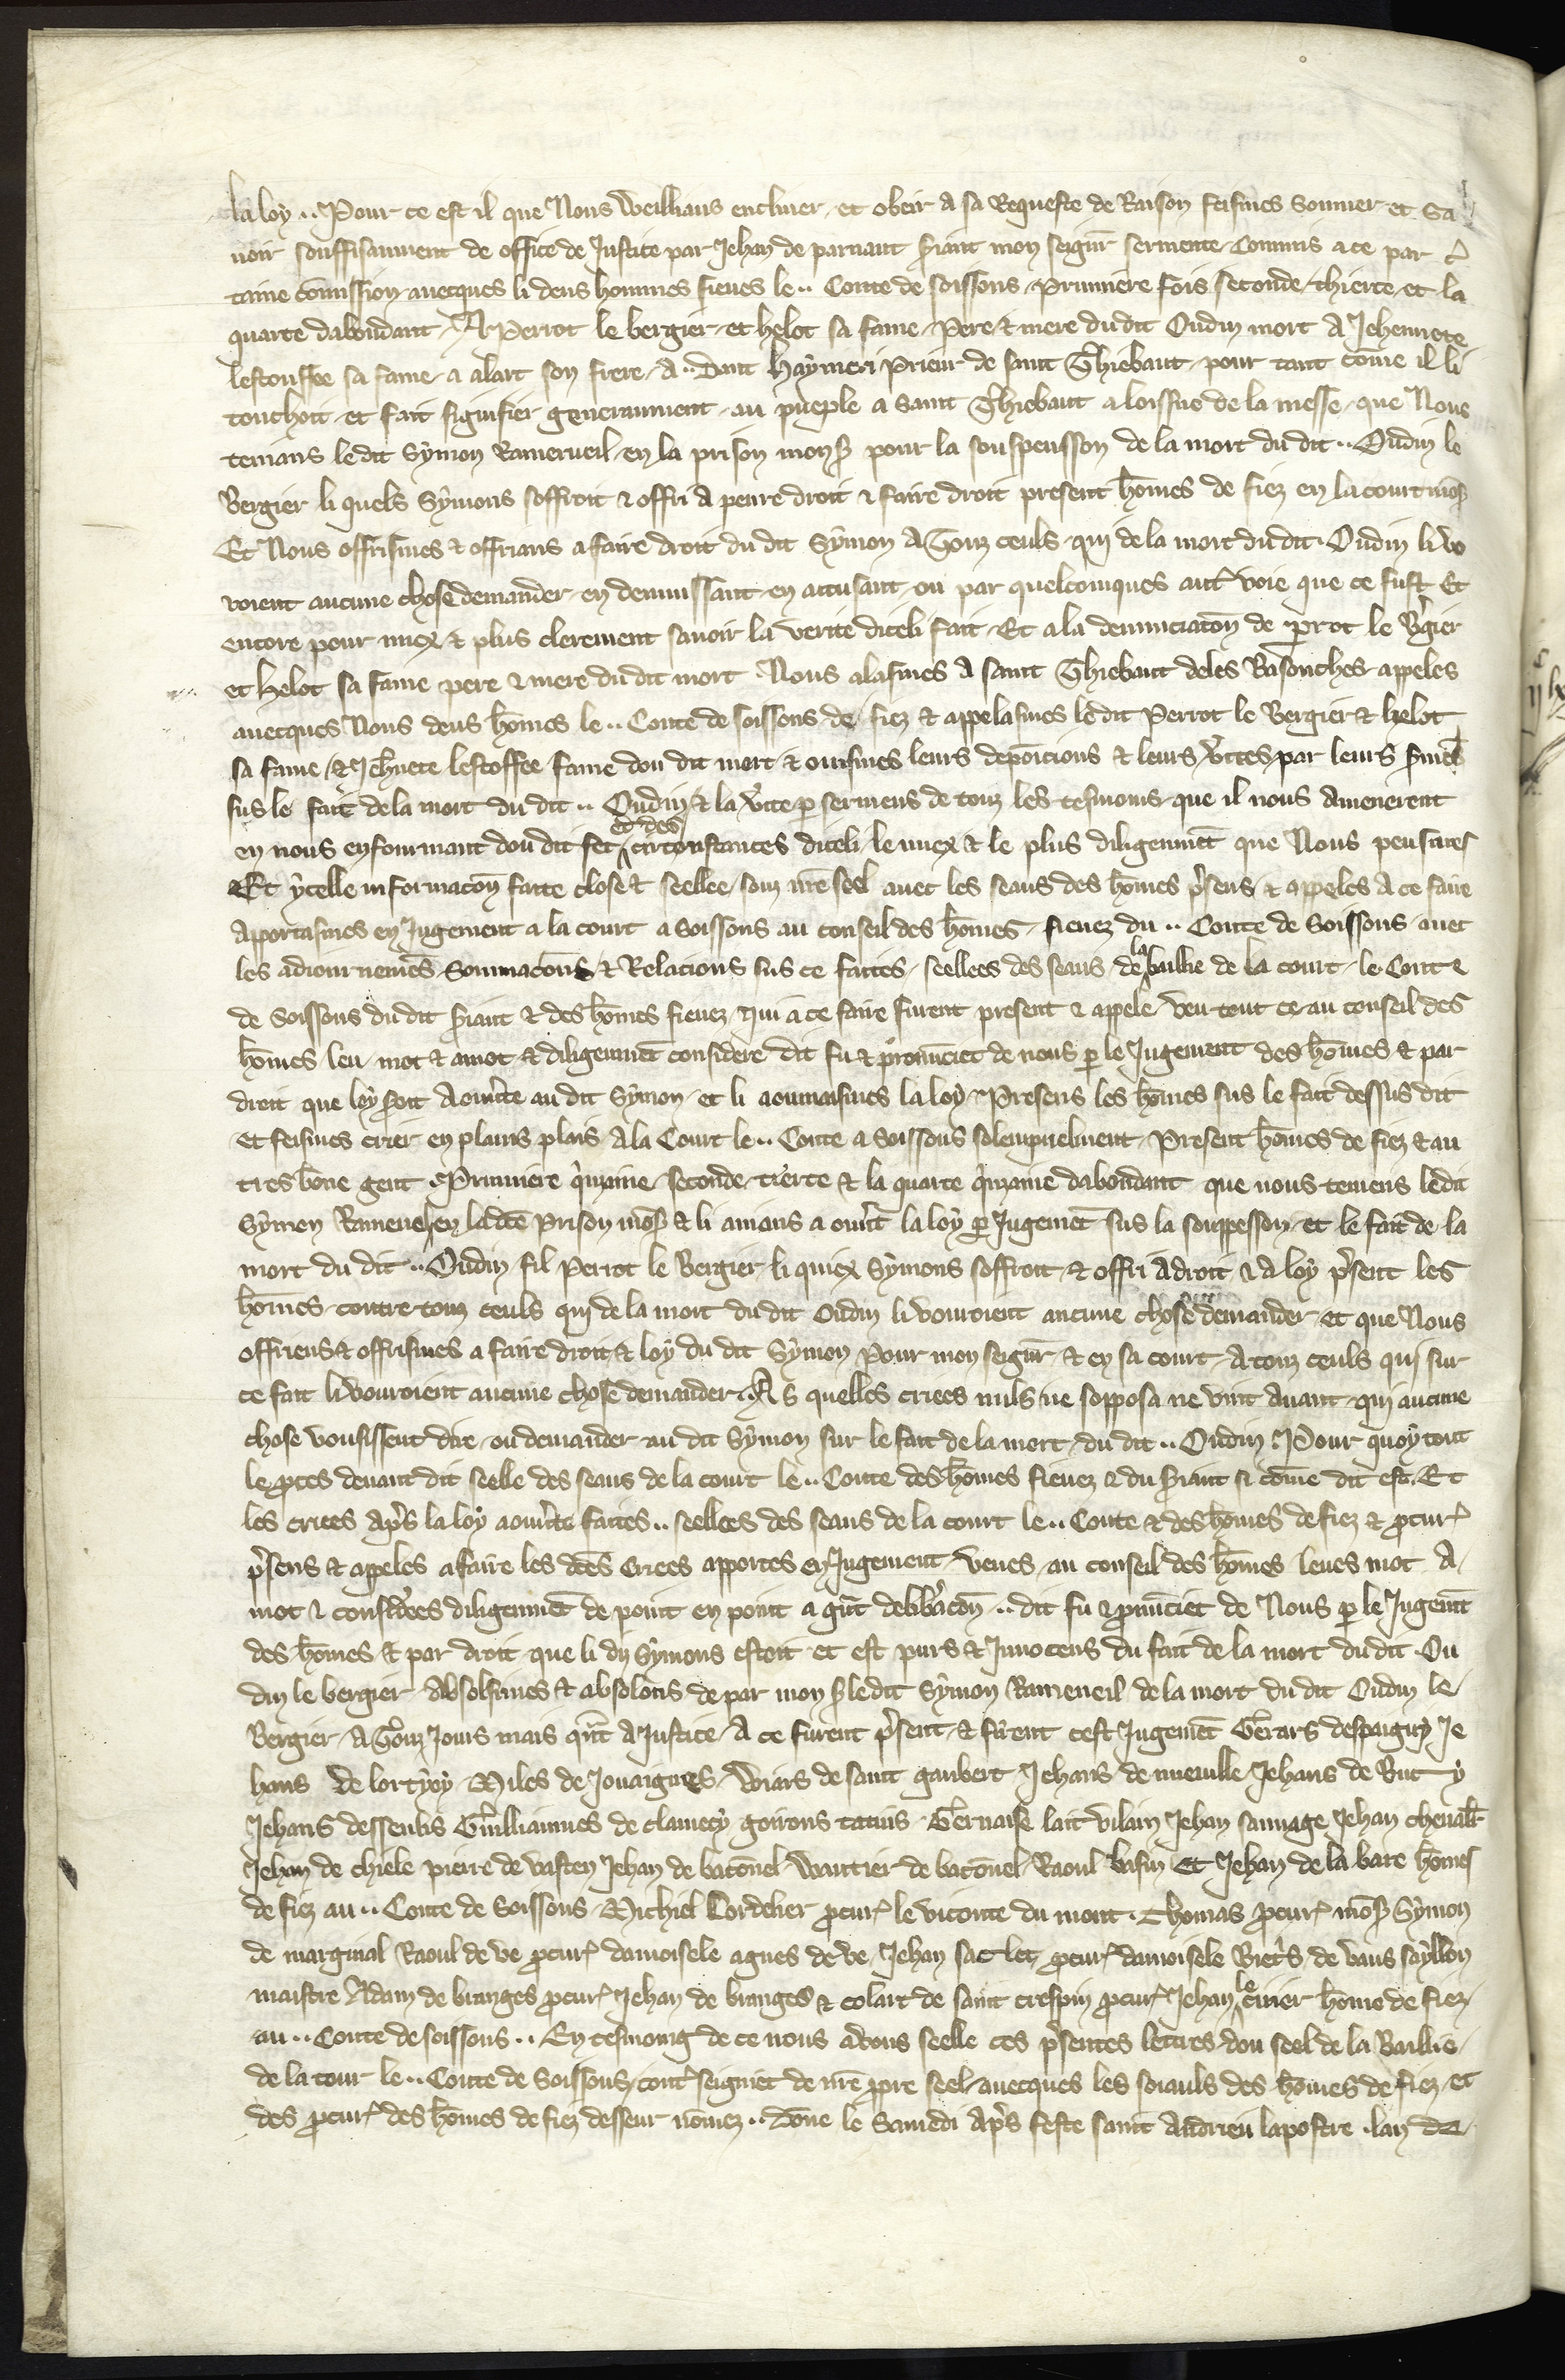 la loy .. Pour ce est il que Nous Weillians encliner et obeir a sa Requeste de Raison feismes sonmer et sa
uoir souffisanment de office de Justice par Jehan de parnant s̃iant mon seigur̃ sermente Conmis a ce par c̃
taine cõmission auecques li deus hommes fieues le .. Conte de soissons / primiere fois seconde / thierce / et la
quarte dabondant / A Perrot le bergier / et helot sa fame / Pere & mere du dit Oudin mort A Jehennete
lestouffee sa fame / a alart son frere / A .. Dant Haymeri prieur de saint Thiebaut / pour tant cõme il li
touchoit / et fait signifier generaument / au pueple a saint Thiebaut a loissue de la messe / que Nous
teniens le dit Symon Ramerueil / en la prison mons̃ pour la souspensson de la mort du dit .. Oudin le
Bergier li quels Symons soffroit & offri a penre droit & faire droit present hõmes de fiez en la court mos̃
Et Nous offrismes & offrians a faire droit du dit Symon A Touz ceuls / qui de la mort du dit Oudin li vo
roient aucune chose demander / en denunssant / en accusant / ou par quelconques aut̃ voie que ce fust Et
encore pour miex & plus clerement sauoir la verite diceli fait / Et a la denunciacõn de prot le B̃gier
et Helot sa fame pere & mere du dit mort / Nous alasmes a saint Thiebaut deles Basonches appeles
auecques Nous deus hõmes le .. Conte de soissons de fiez & appelasmes le dit Perrot le Bergier & helot
sa fame / & Jehñete lestoffee fame dou dit mort & ouismes leurs deposicions & leurs v̾ites / par leurs s̃mẽs
sus le fait de la mort du dit .. Oudin / & la v̾ite p̱ sermens de touz les tesmoins que il nous amenerent
en nous enfourmant dou dit fet et des circonstances diceli / le miex & le plus diligenmẽt que Nous peusmes
Et ycelle informacõn faite close & seellee / souz nr̃e seel auec les seaus des hõmes p̃sens & appeles A ce faire
Apportasmes en Jugement a la court a Soissons au conseil des hõmes / fieuez du .. Conte de Soissons / auec
les adiournemẽs sonmacõns & Relacions sus ce faites / seellees des seaus de la baillie de la court / le Conte
de Soissons du dit s̃iant & des hõmes fieuez / qui a ce faire furent present & appele / veu tout ce au conseil des
hõmes leu mot & amot & diligenmẽt considere dit fu & pronũciet de nous p̱ le Jugement des hõmes & par
droit que loy soit Aouuerte au dit Symon / et li aouurismes la loy / Presens les hõmes sus le fait dessus dit
et feismes crier en plains plais A la Court le .. Conte a Soissons solempnelment / Present hõmes de fiez & au
tres bõne gent / Primiere q̃nzaine / seconde / tierce & la quarte q̃nzaine dabondant que nous teniens le dit
Symon Ramerueil en la dc̃e Prison mos̃ & li auians a ouu̾t la loy p̱ Jugemẽt sus la souppesson / et le fait de la
mort du dit .. Oudin fil Perrot le Bergier / li quiex Symons soffroit & offri a droit & a loy p̃sent les
hõmes / contre touz ceuls qui de la mort du dit Oudin li vouroient aucune chose demander / et que Nous
offriens & offrismes a faire droit & loy du dit Symon pour mon seigur̃ & en sa court A touz ceuls qui sur
ce fait li vouroient aucune chose demander / As quelles criees nuls ne sopposa ne vint auant / qui aucune
chose vousissent dire / ou demander au dit Symon sur le fait de la mort / du dit .. Oudin / Pour quoy tout
le p̱ces deuant dit seelle des seaus de la court le .. Conte des hõmes fieuez & du s̃iant si cõme dit est / Et
les criees ap̃s la loy aouu̾te faites .. seellees des seaus de la court le .. Conte & des hõmes de fiez & p̱cur̾
p̃sens & appeles a faire les dc̃es criees apportes en Jugement / veues / au conseil des hõmes / leues mot A
mot & consid̾ees diligenmẽt de point en point a gr̃t delib̾acõn .. dit fu & pronũciet de Nous p̱ le Jugemẽt
des hõmes & par droit que li diz Symons estoit et est purs & Jnnocens du fait de la mort du dit Ou
din le bergier / Absolsimes & absolons de par mon s̃ le dit Symon Ramerueil de la mort du dit Oudin le
Bergier / A Touz Jours mais q̃nt A Justice / A ce furent p̃sent & firent cest Jugemẽt Gerars despaigny Je
hans de lortyoy Miles de Jouaignes / Wiars de saint gaubert Jehans de nueuille Jehans de Buc y
Jehans dessenlis Guilliaumes de clamecy goirons tatins Gernaise lait vilain Jehan sauuage Jehan cheual̃
Jehan de chiele pierre de vasten Jehan de bacõnel Wautier de bacõnel Raoul basin et Jehan de la bare hõmes
de fiez au .. Conte de Soissons Michiel Cordelier p̱cur̾ le viconte du mont . Thomas p̱cur̾ mos̃ Symon
de marginal Raoul de ve p̱cur̾ damoisele agnes de ve Jehan sac lec p̱cur̾ damoisele Biet̾s de vaus sayllon
maistre Adam de branges p̱cur̾ Jehan de branges & colart de saint crespin p̱cur̾ Jehan le cirier home de fiez
au .. Conte de soissons .. En tesmoing de ce nous auons seelle ces p̃sentes lettres / dou seel de la Baillie
de la cour le .. Conte de Soissons / cont̾seigniet de nr̃e p̱pre seel / auecques les seiauls des hõmes de fiez / et
des p̱cur̾ des hõmes de fiez desseur nõmez .. Dõne le Samedi ap̃s feste saint Andrieu lapostre . lan de